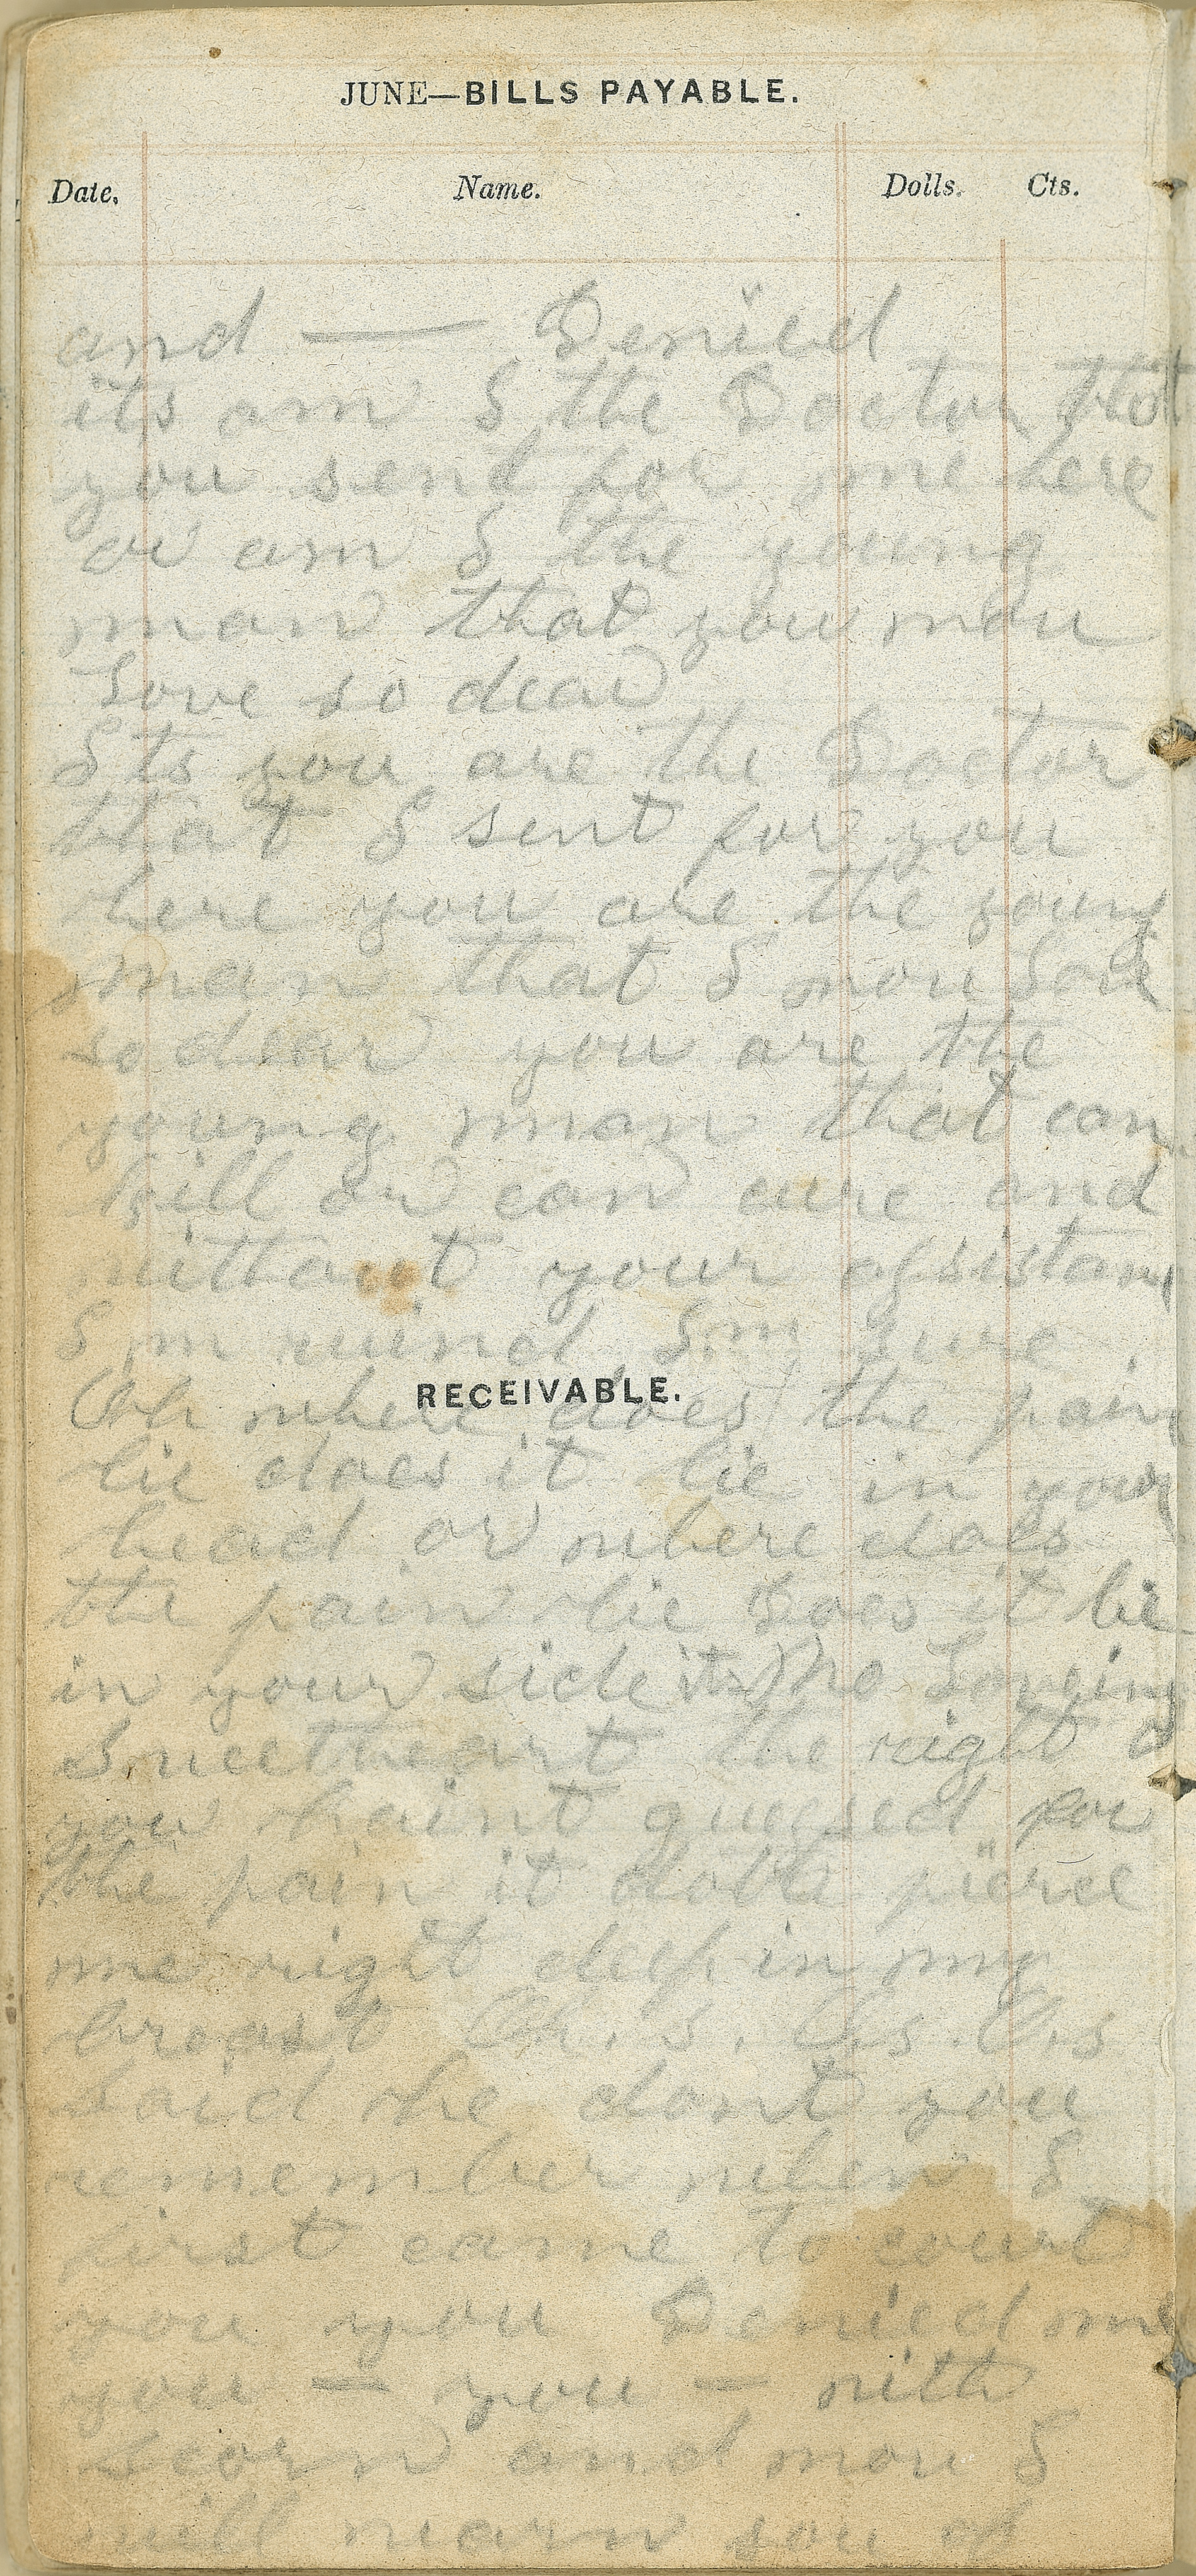 JUNE—BILLS PAYABLE.
Date. Name. Dolls. Cts.
and — Denied
its am I the Doctor that
you send for me here
or am I the young
man that you nou
Love so dear
Its you are the Doctor
that I sent for you
here you are the young
man that I nou Love
so dear you are the
young man that can
kill or can cure and
mittout your assistan
I m ruind I m sure
RECEIVABLE.
Oh where does the pain
lie does it lie in your
head or where does
the pain lie Does it lie
in your side its No Loveing
Sweetheart the right
you haint guessed for
the pain it doth pierce
me right deep in my
breast Oh. s. Oh s. Oh s
said she dont you
remember when I
first came to court
you you Denied me
you — you — with
scorn and nou I
will you of